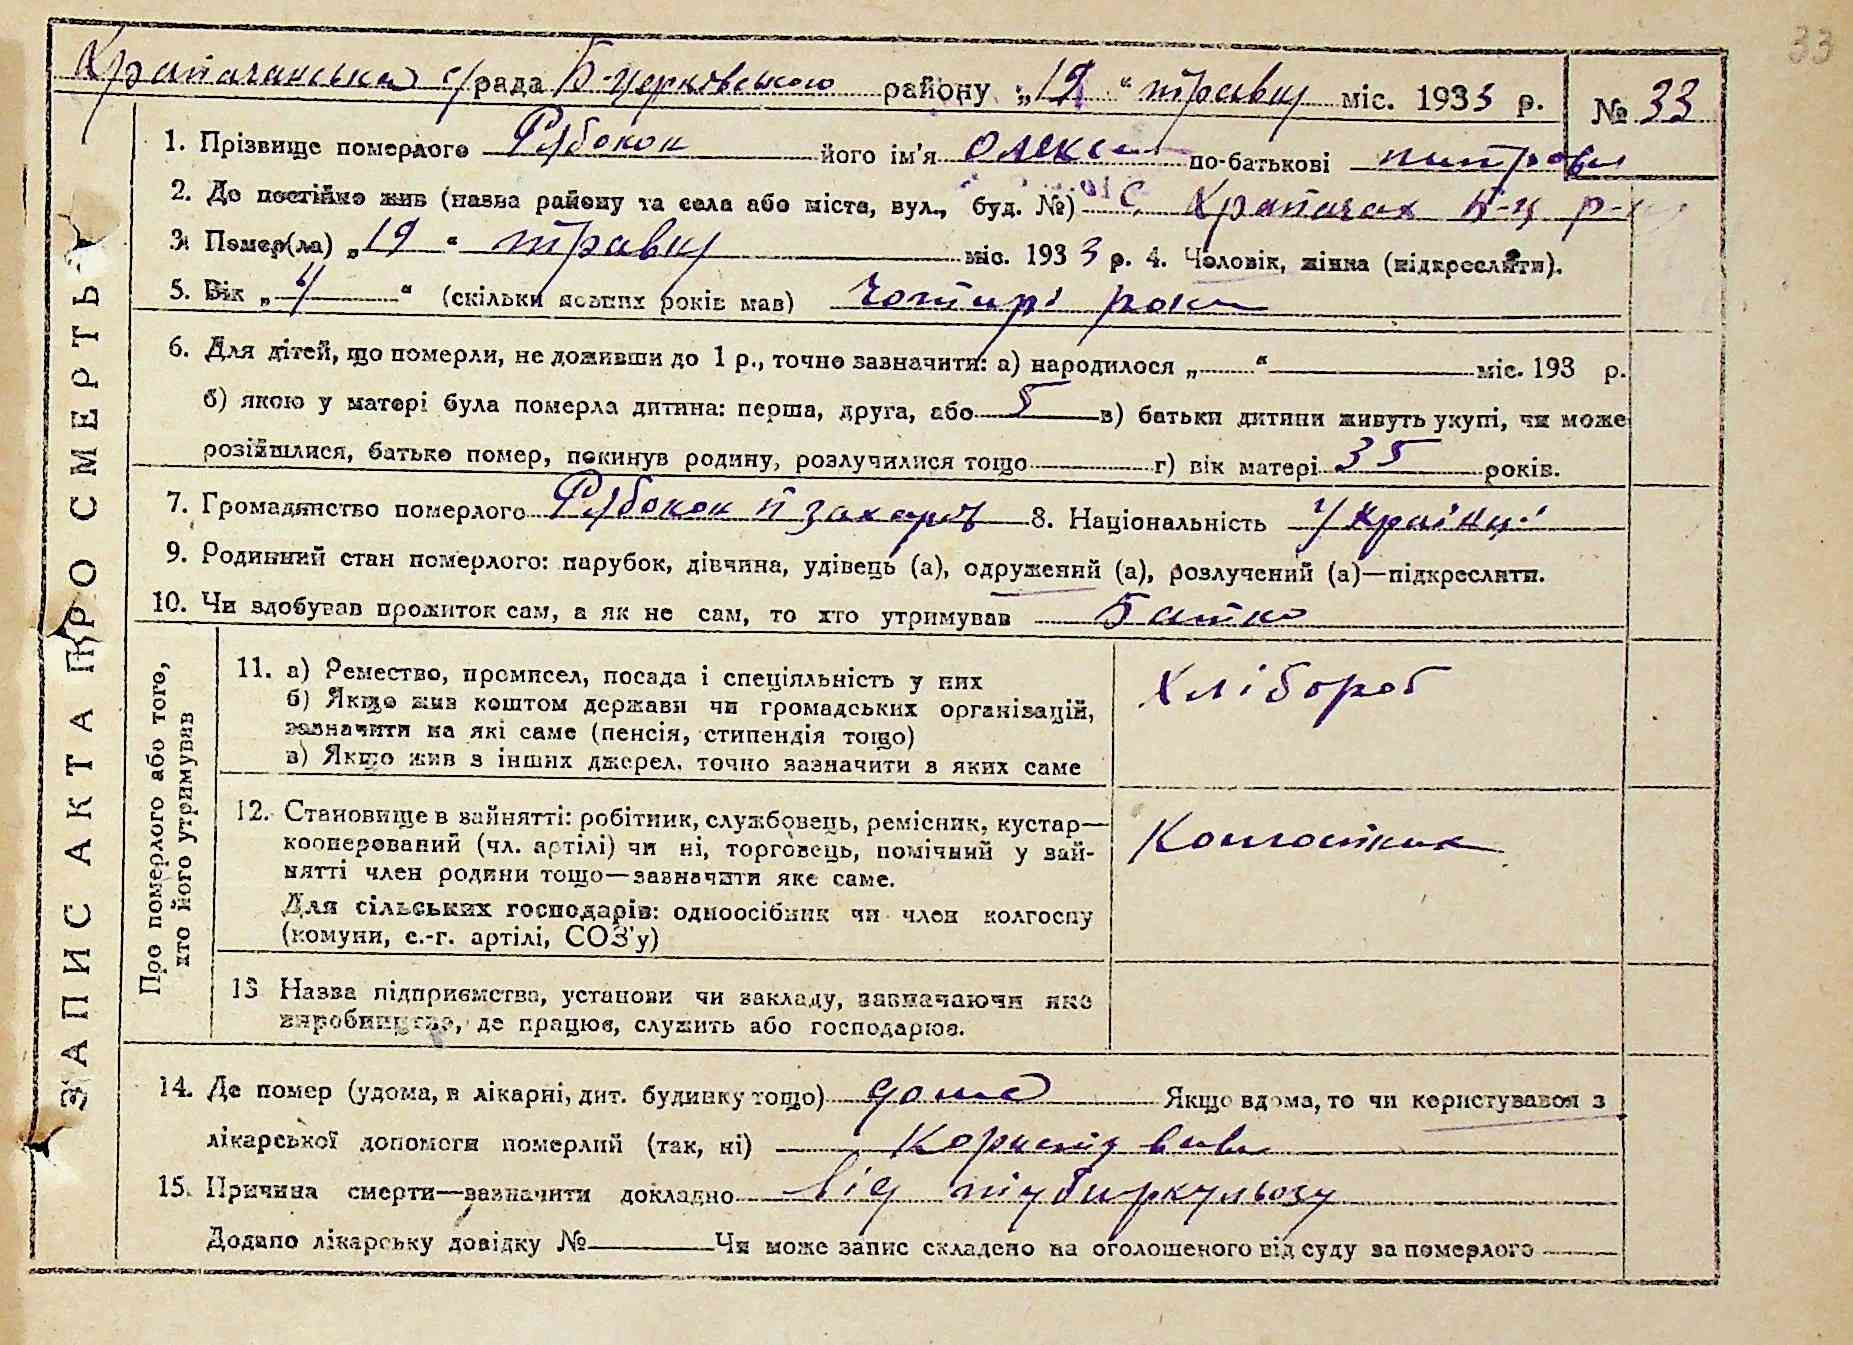 33
Храпачанська с/рада Б-церковського району „19“ травня міс. 1933 р. № 33
1. Прізвище померлого Рябокон його ім'я олекса по-батькові питрови
2. Де постійно жив (назва району та села або місто, вул., буд. №) с. Храпачах Б-ц р-ну
3. Помер(ла) „19“ травня міс. 1933 р. 4. Чоловік, жінка (підкреслити).
5. Вік „4“ (скільки повних років мав) чотирі роки
6. Для дітей, що померли, не доживши до 1 р., точно зазначити: а) народилося „ “ міс. 193 р.
б) якою у матері була померла дитина: перша, друга, або 5 в) батьки дитини живуть укупі, чи може
розійшлися, батько помер, покинув родину, розлучилися тощо г) вік матері 35 років.
7. Громадянство померлого Рябокон п захаров 8. Національність Українці
9. Родинний стан померлого: парубок, дівчина, удівець (а), одружений (а), розлучений (а)—підкреслити.
10. Чи здобував прожиток сам, а як не сам, то хто утримував Батко
ЗАПИС АКТА ПРО СМЕРТЬ
Про померлого або того,
хто його утримував
11. а) Ремество, промисел, посада і спеціяльність у них
б) Якщо жив коштом держави чи громадських організацій,
зазначити на які саме (пенсія, стипендія тощо)
в) Якщо жив з інших джерел, точно зазначити з яких саме
Хлібороб
12. Становище в зайнятті: робітник, службовець, ремісник, кустар—
кооперований (чл. артілі) чи ні, торговець, помічний у зай-
нятті член родини тощо—зазначити яке саме.
Для сільських господарів: одноосібник чи член колгоспу
(комуни, с.-г. артілі, СОЗ'у)
Колгостник
13 Назва підприємства, установи чи закладу, зазначаючи яке
виробництво, де працює, служить або господарює.
14. Де помер (удома, в лікарні, дит. будинку тощо) дома Якщо вдома, то чи користувався з
лікарської допомоги померлий (так, ні) Користував
15. Причина смерти—зазначити докладно Від тубиркульозу
Додано лікарську довідку № Чи може запис складено на оголошеного від суду за померлого